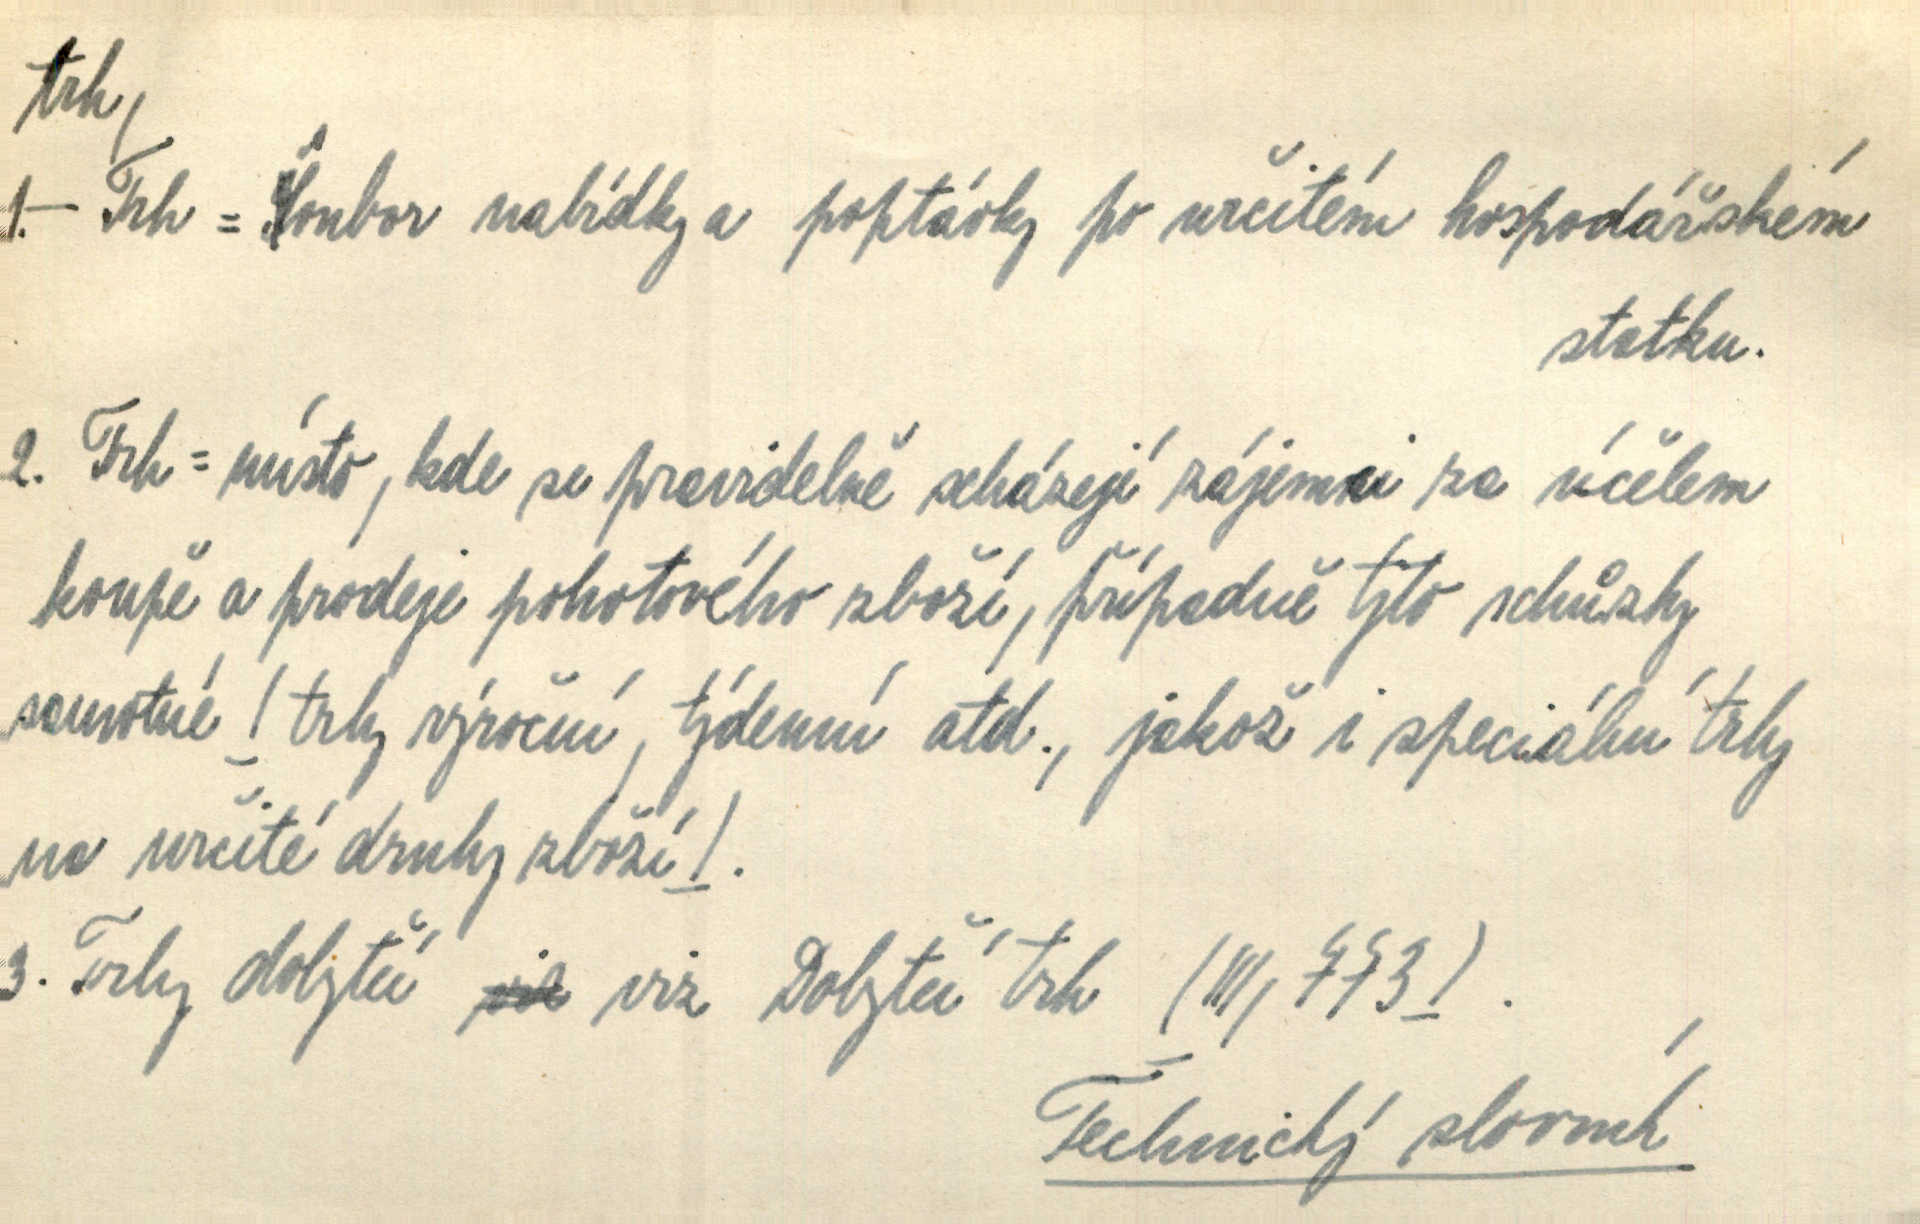 trh,
1.– Trh = Soubor nabídky a poptávky po určitém hospodářském
statku.
2. Trh = místo, kde se pravidelně scházejí zájemci za účelem
koupě a prodeje pohotového zboží, případně tyto schůzky
samotné /trhy výroční, týdenní atd., jakož i speciální trhy
na určité druhy zboží/.
3. Trhy dobytčí viz Dobytčí trh /III, 773/.
Technický slovník